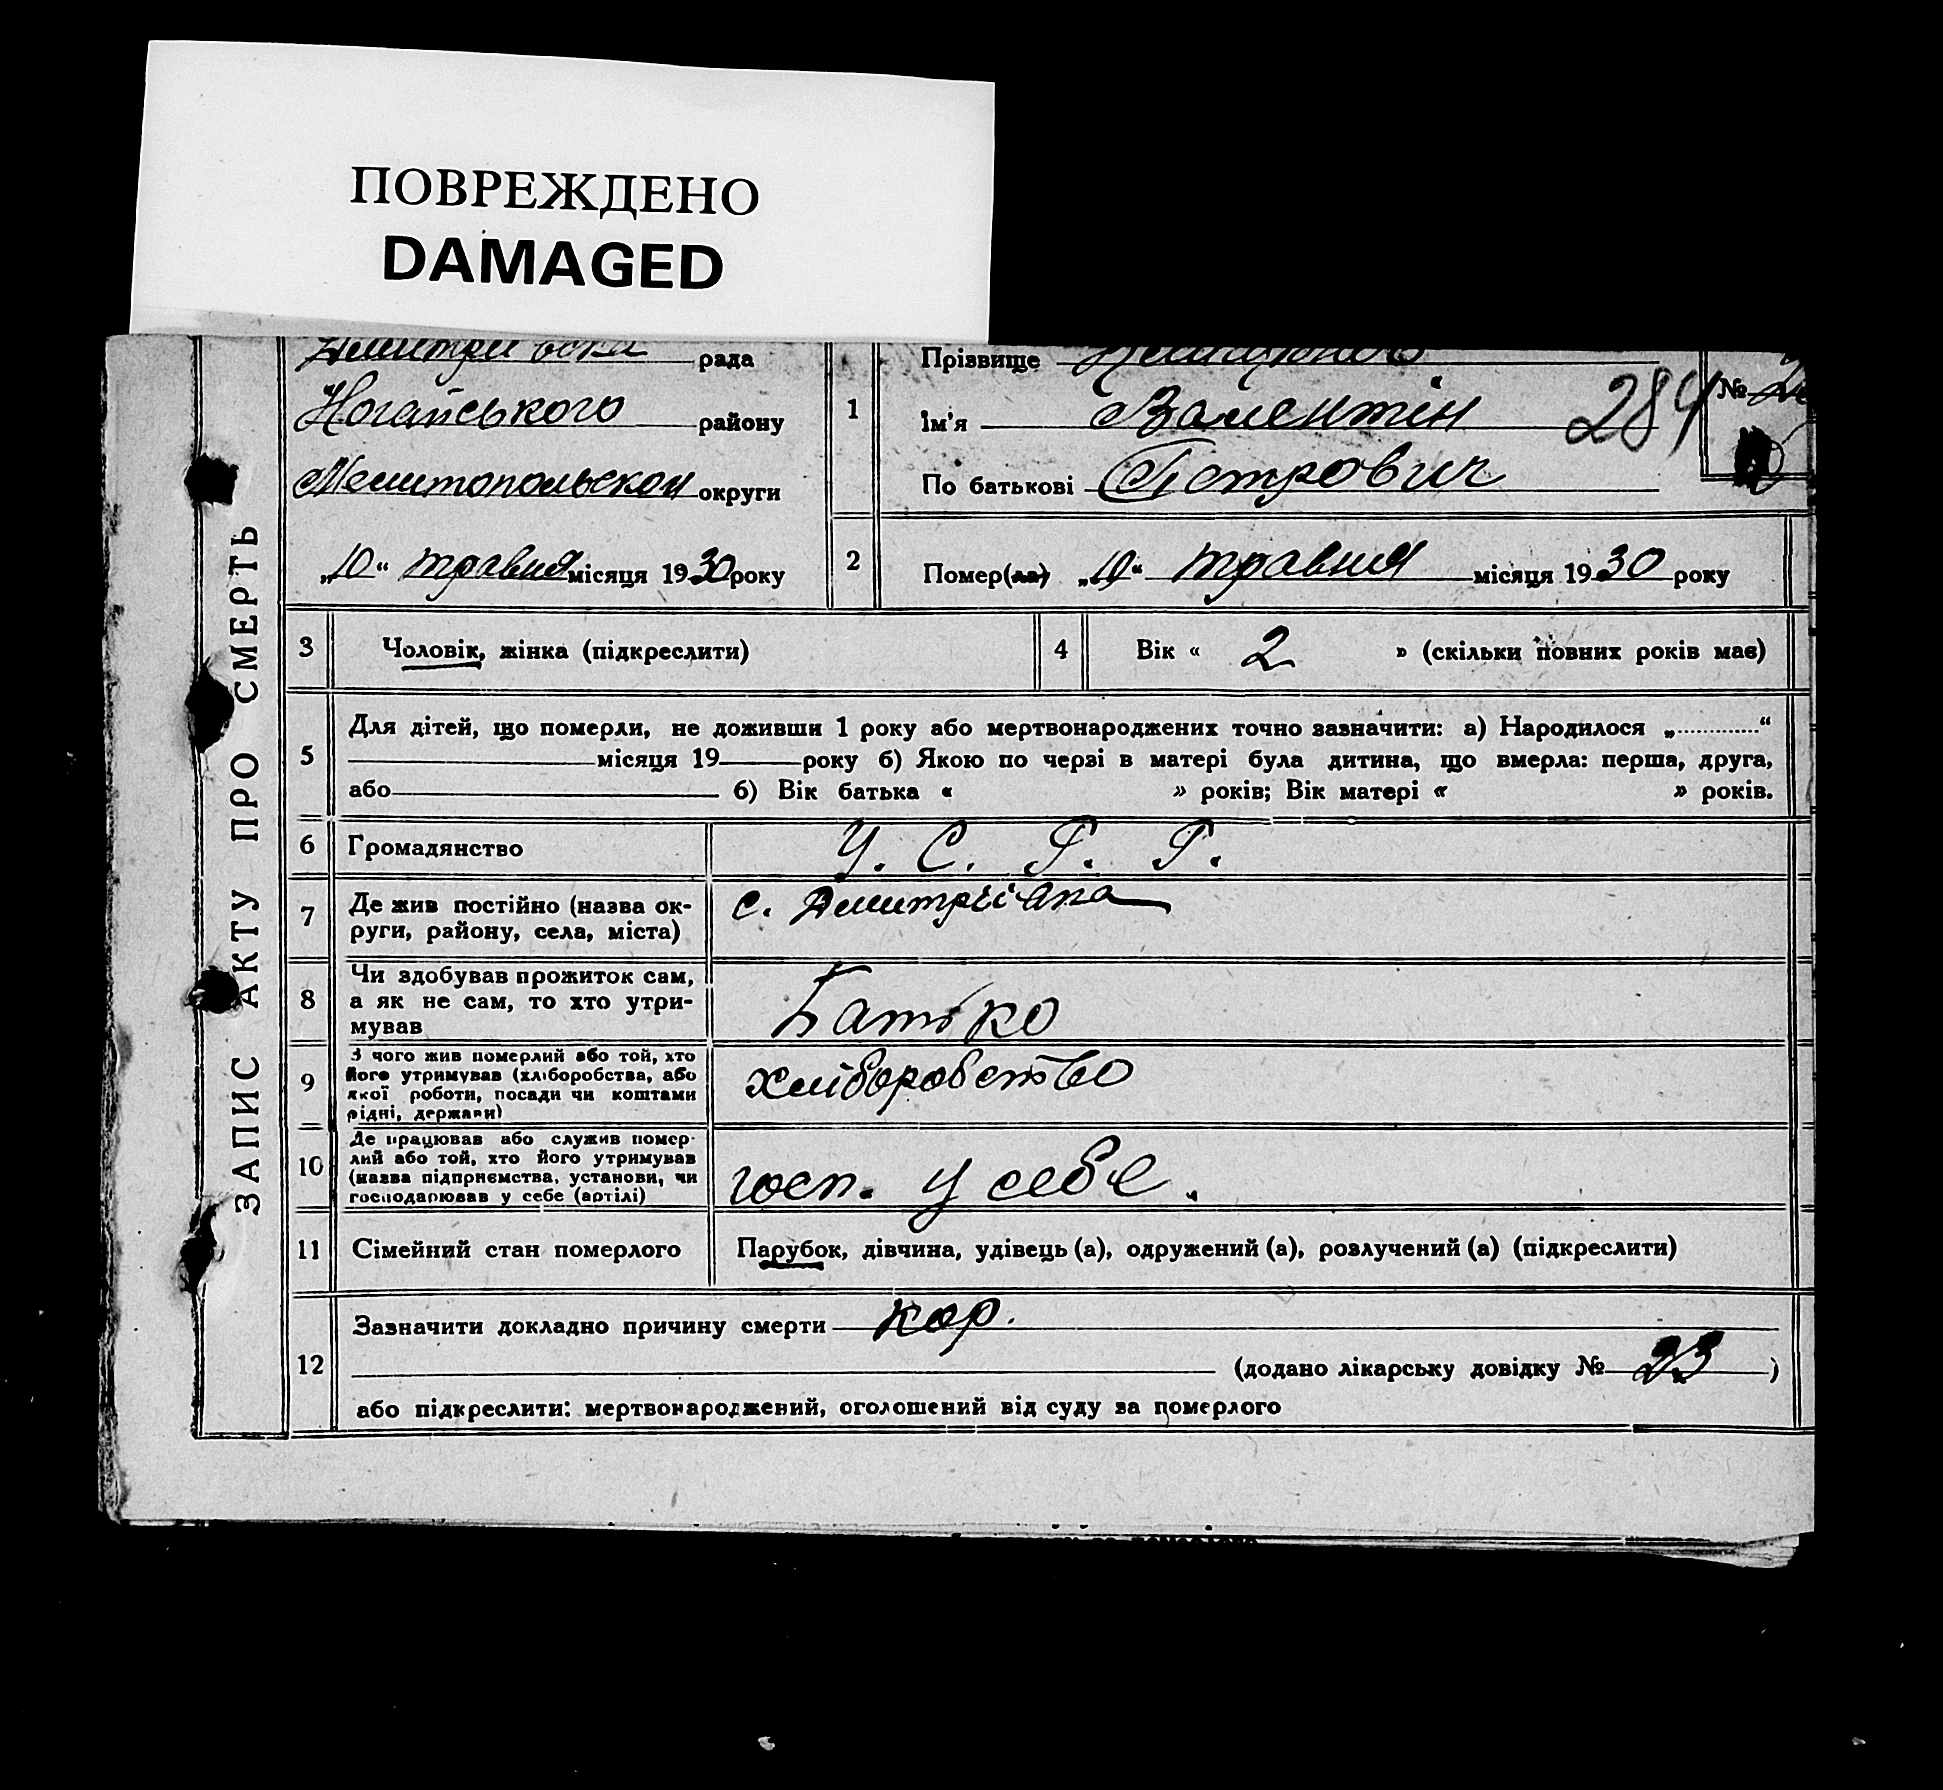 ПОВРЕЖДЕНО
DAMAGED
ЗАПИС АКТУ ПРО СМЕРТЬ
рада
Ногайського району
Мелитопольскои округи
„10“ травня місяця 1930 року
1
Прізвище
Ім'я Валентін
По батькові Петрович
284
№
2
Помер(ла) „10“ травня місяця 1930 року
3 Чоловік, жінка (підкреслити)
4 Вік « 2 » (скільки повних років має)
5
Для дітей, що померли, не доживши 1 року або мертвонароджених точно зазначити: а) Народилося „.............“
місяця 19 року б) Якою по черзі в матері була дитина, що вмерла: перша, друга,
або б) Вік батька « » років; Вік матері « » років.
6 Громадянство У. С. Р. Р.
7 Де жив постійно (назва ок-
руги, району, села, міста)
с. Дмитріівка
8 Чи здобував прожиток сам,
а як не сам, то хто утри-
мував
Батько
9 З чого жив померлий або той, хто
його утримував (хліборобства, або
якої роботи, посади чи коштами
рідні, держави)
хліборобство
10 Де працював або служив помер-
лий або той, хто його утримував
(назва підприємства, установи, чи
господарював у себе (артілі)
госп. у себе.
11 Сімейний стан померлого Парубок, дівчина, удівець (а), одружений (а), розлучений (а) (підкреслити)
12 Зазначити докладно причину смерти кор.
(додано лікарську довідку № 23 )
або підкреслити: мертвонароджений, оголошений від суду за померлого